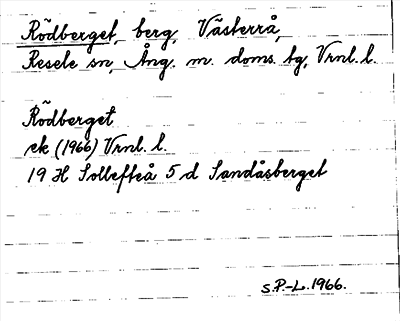 Rödberget, berg, Västerrå,
Resele sn, Ång. m. doms. tg, Vrnl. l.
Rödberget
ek (1966) Vrnl. l.
19 H Sollefteå 5 d Sandåsberget
S.P.-L. 1966.